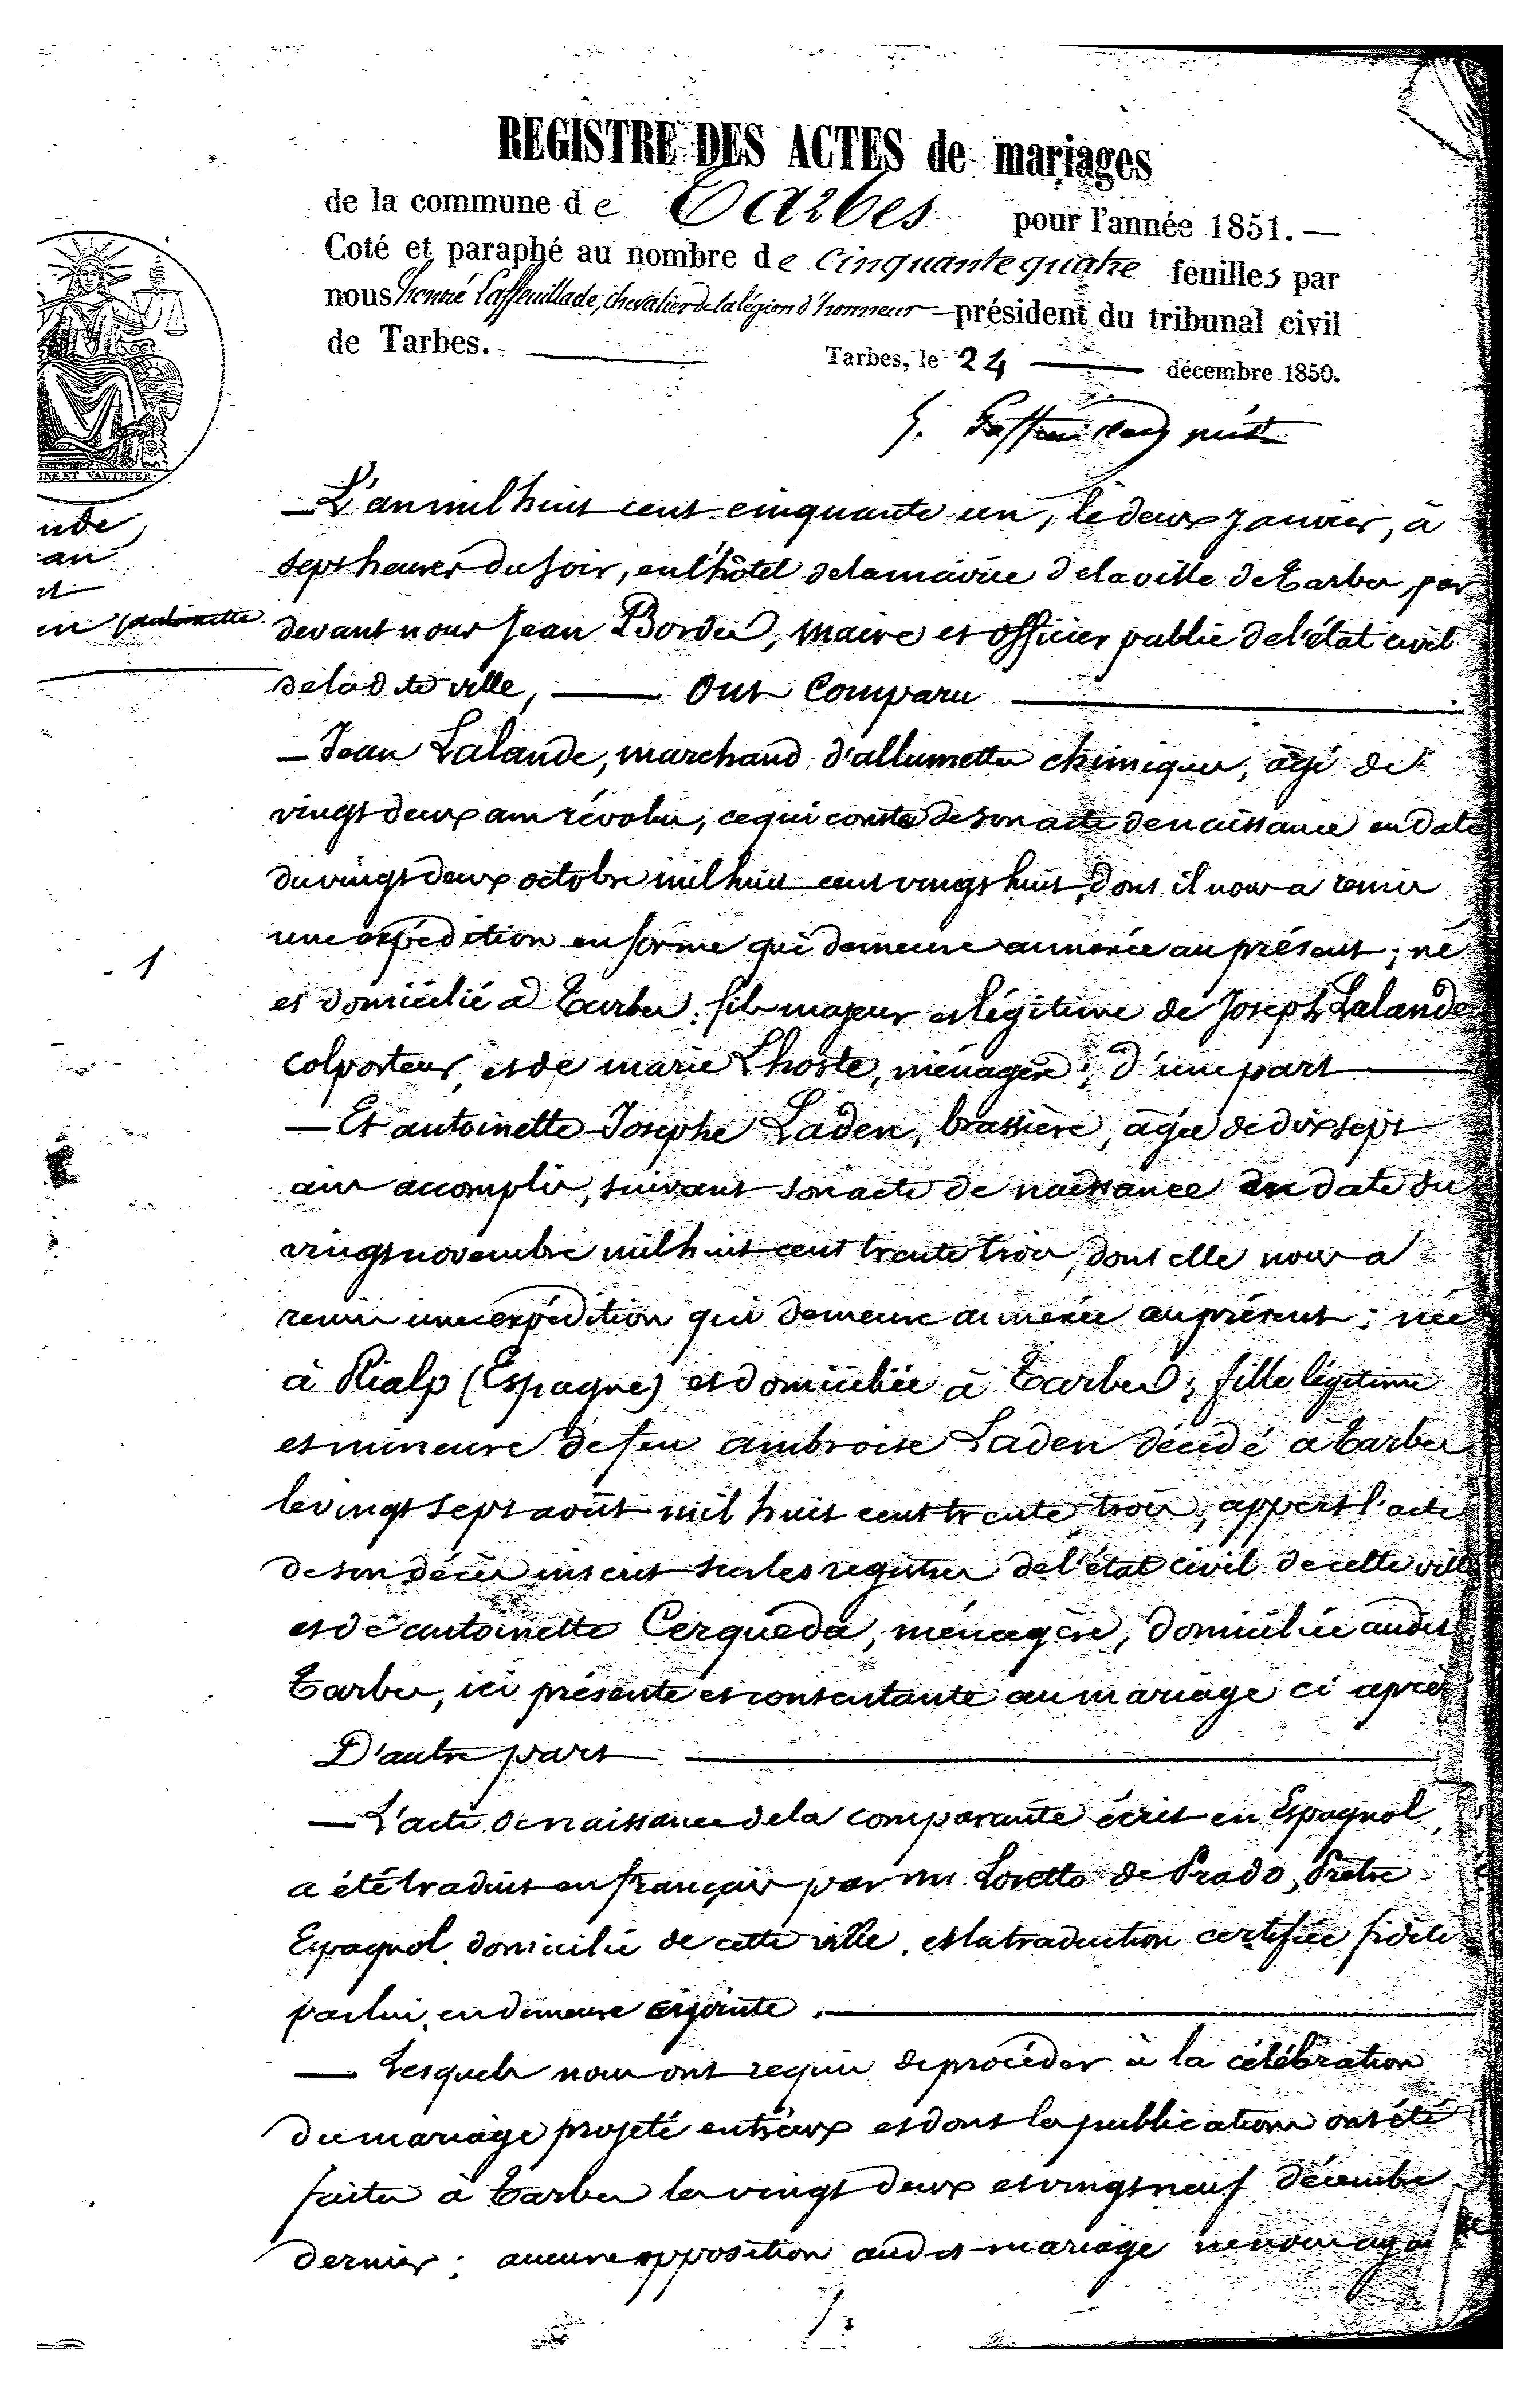 REGISTRE DES ACTES de mariages
de la commune de Tarbes pour l'année 1851. —
Coté et paraphé au nombre de cinquante quatre feuilles par
nous honoré Laffeuillade, chevalier de la légion d'honneur — président du tribunal civil
de Tarbes. — Tarbes, le 24 — décembre 1850.
INE ET VAUTHIER.
nde
an
et
en antoinette
— L'an mil huit cent cinquante un, le deux janvier, à
sept heures du soir, en l'hôtel de la mairie de la ville de Tarbes, par
devant nous Jean Borde, maire et officier public de l'état civil
de lad.te ville, — Ont Comparu —
— Jean Lalande, marchand d'allumettes chimiques, âgé de
vingt deux ans révolus, ce qui conste de son acte de naissance en date
du vingt deux octobre mil huit cent vingt huit, dont il nous a remis
une expédition en forme qui demeure annexée au présent; né
et domicilié à Tarbes; fils majeur et légitime de Joseph Lalande
colporteur, et de marie Lhoste, ménagère; d'une part —
— Et antoinette Josephe Laden, brassière, âgée de dix sept
ans accomplis, suivant son acte de naissance en date du
vingt novembre mil huit cent trente trois, dont elle nous a
remis une expédition qui demeure annexée au présent; née
à Rialp (Espagne) et domiciliée à Tarbes; fille légitime
et mineure de feu ambroise Laden décédé à Tarbes
le vingt sept août mil huit cent trente trois, appert l'acte
de son décès inscrit sur les registres de l'état civil de cette ville
et de antoinette Cerquéda, ménagère, domiciliée audit
Tarbes, ici présente et consentante au mariage ci après
D'autre part —
— L'acte de naissance de la comparante écrit en Espagnol,
a été traduit en français par mr Loretto de Prado, Prêtre
Espagnol domicilié de cette ville, et la traduction certifiée fidèle
par lui, en demeure cijointe. —
— Lesquels nous ont requis de procéder à la célébration
du mariage projeté entr'eux et dont les publications ont été
faites à Tarbes les vingt deux et vingt neuf décembre
dernier; aucune opposition audit mariage ne nous ayant
1